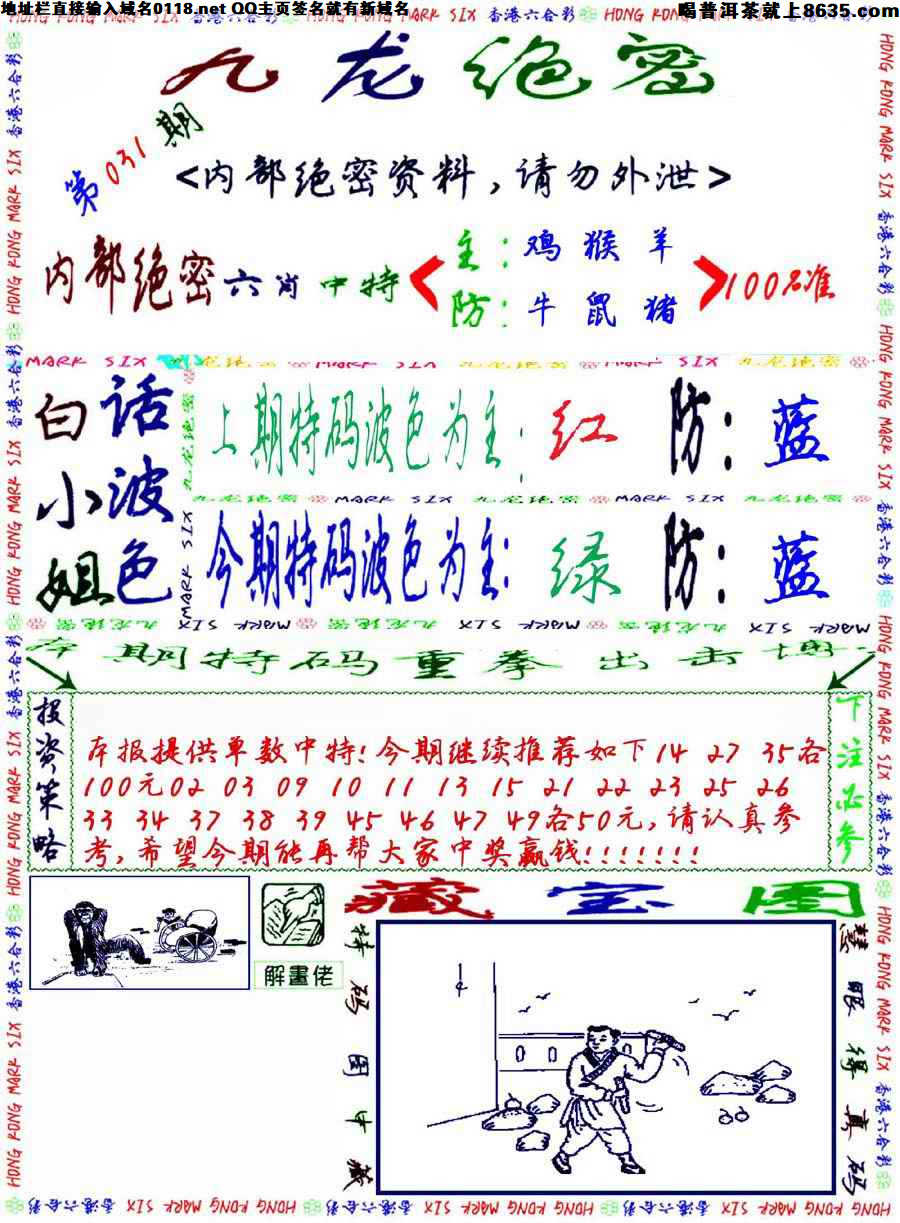 地址栏直接输入域名0118.net QQ主页签名就有新域名
喝普洱茶就上8635.com
九龙绝密
第031期
<内部绝密资料,请勿外泄>
内部绝密六肖中特
主:鸡猴羊
防:牛鼠猪
100%准
白小姐
话波色
上期特码波色为主:红 防:蓝
今期特码波色为主:绿 防:蓝
本期特码重拳出击博
报资策略
本报提供单数中特!今期继续推荐如下14 27 35各
100元02 03 09 10 11 13 15 21 22 23 25 26
33 34 37 38 39 45 46 47 49各50元,请认真参
考,希望今期能再帮大家中奖赢钱!!!!!!!
下注必参
解畫佬
藏宝图
特码图中藏
慧眼得真码
HONG KONG MARK SIX 香港六合彩
MARK SIX 九龙绝密